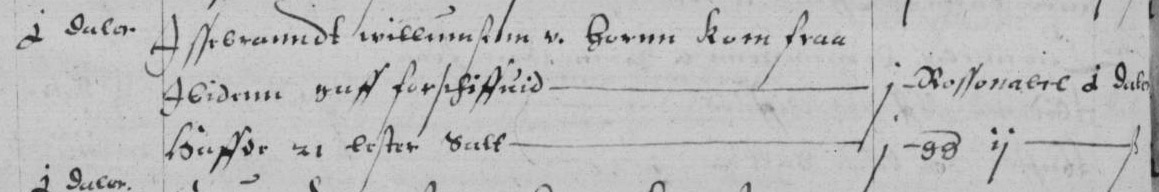 j daler Issebranndt willumsenn v. Hornn kom fraa
Ibidenn gaff for schiffuid j Rossenabel j daler
Haffde 21 lester Salt j gg ij β
j daler.